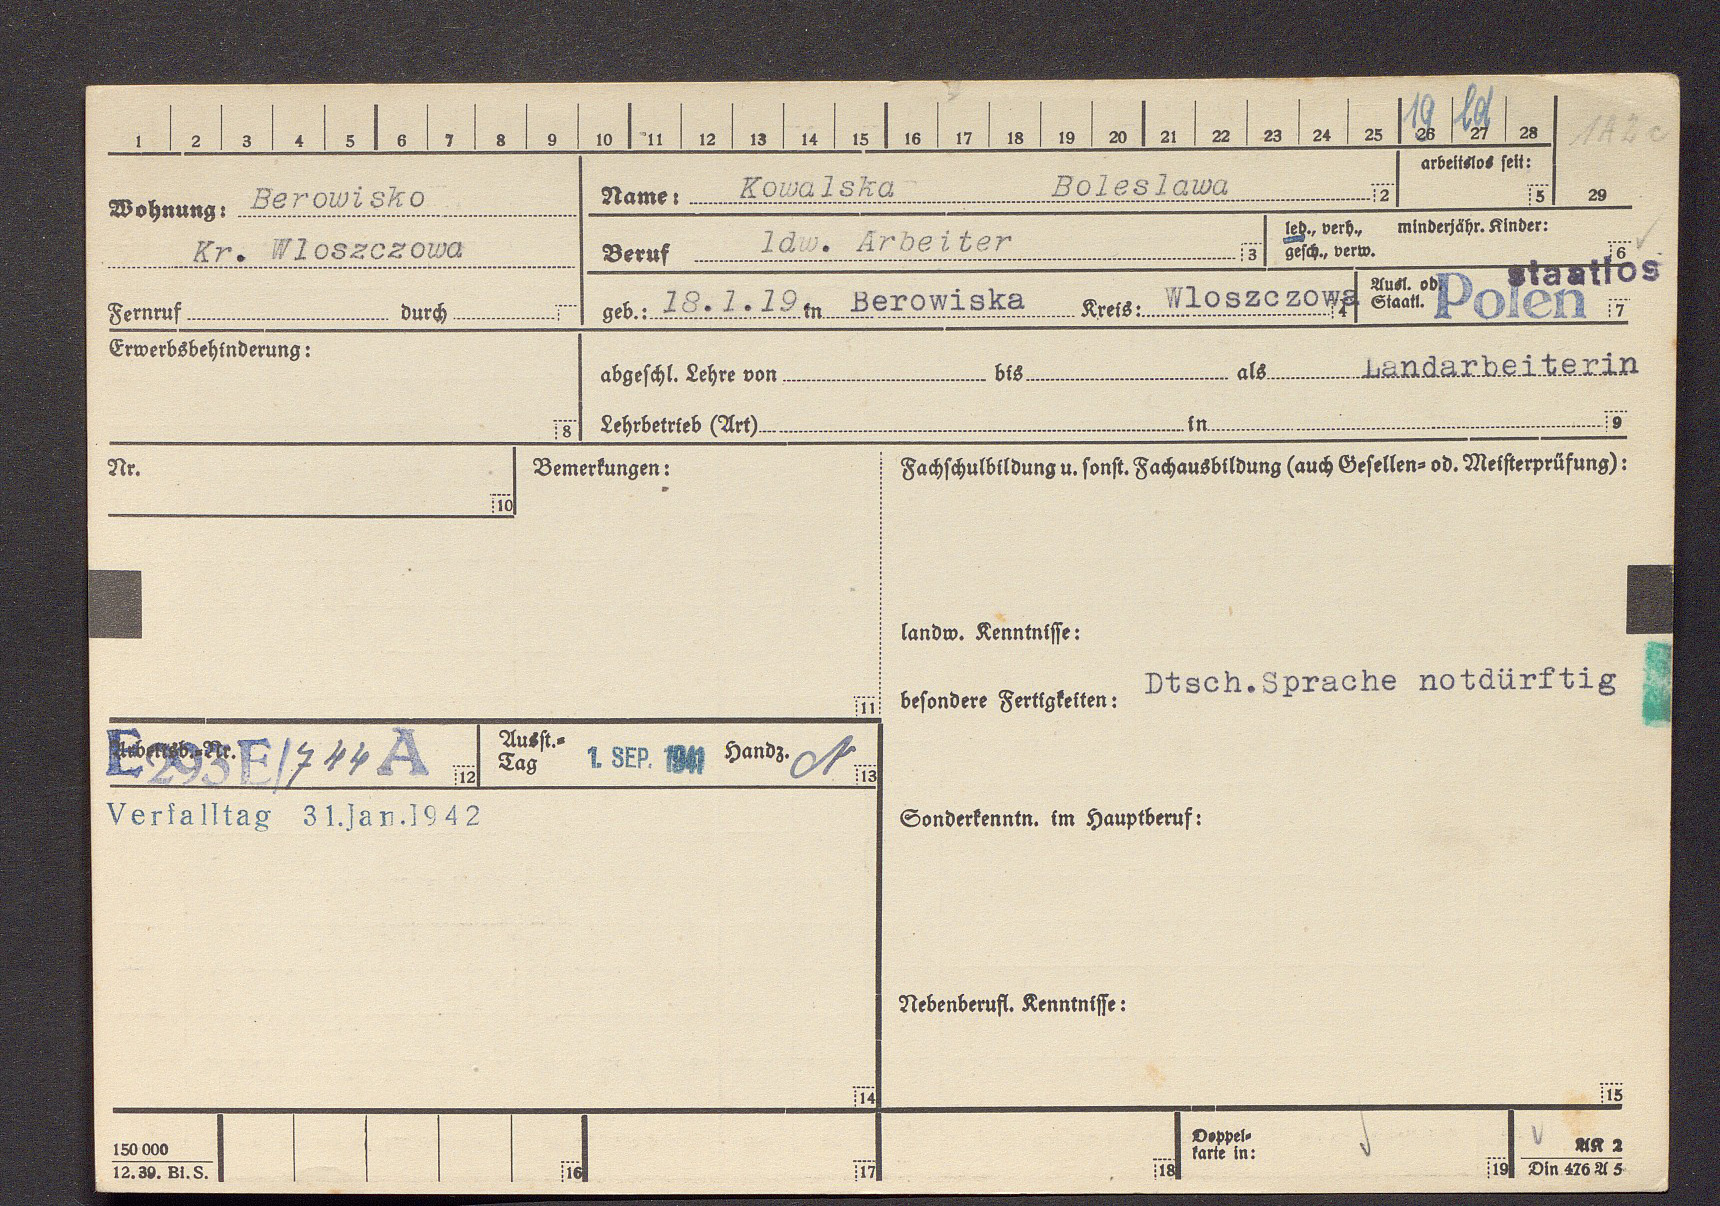 1 2 3 4 5 6 7 8 9 10 11 12 13 14 15 16 17 18 19 20 21 22 23 24 25 26 27 28
19 ld
1A2c
29
Wohnung: Berowisko
Kr. Wloszczowa
Name: Kowalska Boleslawa 2
arbeitslos seit: 5
Beruf ldw. Arbeiter 3
led., verh., gesch., verw.
minderjähr. Kinder: 6
Fernruf durch
geb.: 18.1.19 in Berowiska Kreis: Wloszczowa 4
Ausl. od. Staatl. Polen staatlos 7
Erwerbsbehinderung: 8
abgeschl. Lehre von bis als Landarbeiterin
Lehrbetrieb (Art) in 9
Nr. 10
Bemerkungen: 11
Fachschulbildung u. sonst. Fachausbildung (auch Gesellen- od. Meisterprüfung):
landw. Kenntnisse:
besondere Fertigkeiten: Dtsch.Sprache notdürftig
Arbeitsb.-Nr. E 293 E/744 A 12
Ausst.-Tag 1. SEP. 1941 Handz. 13
Verfalltag 31.Jan.1942
Sonderkenntn. im Hauptberuf:
Nebenberufl. Kenntnisse:
14
15
150 000
12. 39. Bl. S.
16
17
18
Doppelkarte in: 19
AK 2
Din 476 A 5